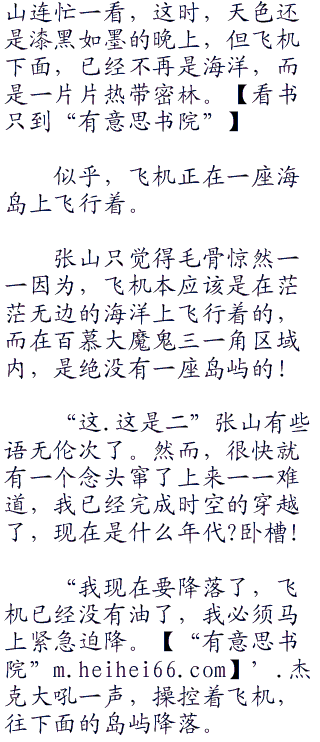 山连忙一看，这时，天色还
是漆黑如墨的晚上，但飞机
下面，已经不再是海洋，而
是一片片热带密林。【看书
只到“有意思书院”】
似乎，飞机正在一座海
岛上飞行着。
张山只觉得毛骨惊然一
一因为，飞机本应该是在茫
茫无边的海洋上飞行着的，
而在百慕大魔鬼三一角区域
内，是绝没有一座岛屿的！
“这.这是二”张山有些
语无伦次了。然而，很快就
有一个念头窜了上来一一难
道，我已经完成时空的穿越
了，现在是什么年代?卧槽！
“我现在要降落了，飞
机已经没有油了，我必须马
上紧急迫降。【“有意思书
院”m.heihei66.com】’.杰
克大吼一声，操控着飞机，
往下面的岛屿降落。